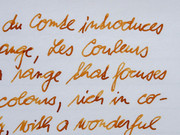 du Comte introduces
ange, Les Couleurs
range that focuses
colours, rich in co-
with a wonderful